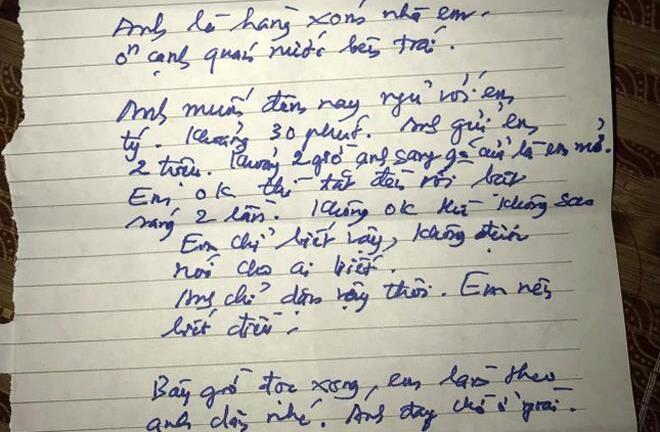 Anh là hàng xóm nhà em.
ở cạnh quán nước bên trái.
Anh muốn đêm nay ngủ với em
tý. Khoảng 30 phút. Anh gửi em
2 triệu. Khoảng 2 giờ anh sang gõ cửa là em mở.
Em ok thì tắt đèn rồi bật
sáng 2 lần. Không ok thì không sao
Em chỉ biết vậy, không được
nói cho ai biết.
Anh chỉ dặn vậy thôi. Em nên
biết điều.
Bây giờ đọc xong, em làm theo
anh dặn nhé. Anh đay chờ ở